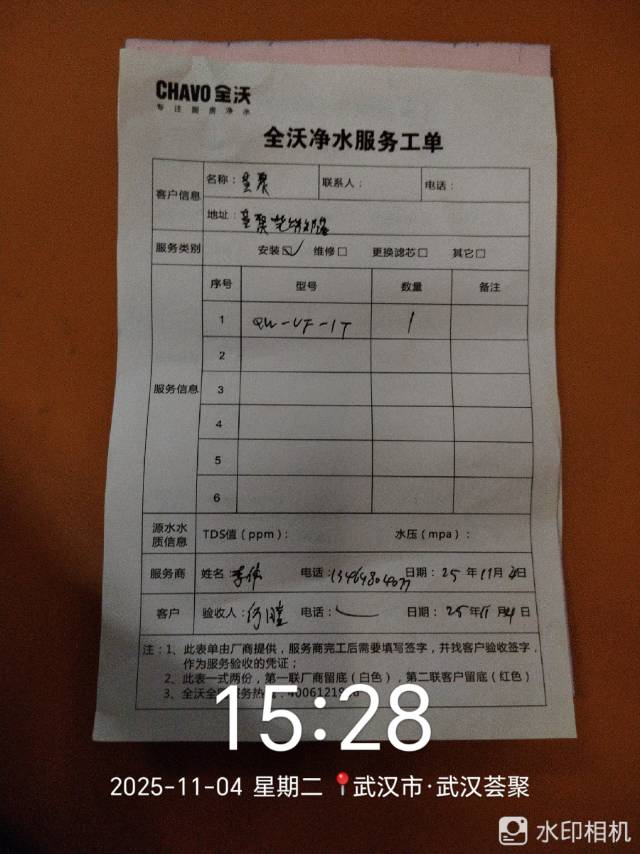 CHAVO 全沃
专注厨房净水
全沃净水服务工单
客户信息 名称： 联系人： 电话：
地址：
服务类别 安装☑ 维修□ 更换滤芯□ 其它□
服务信息 序号 型号 数量 备注
1 QW-UF-1T 1
2
3
4
5
6
源水水质信息 TDS值（ppm）： 水压（mpa）：
服务商 姓名：李伟 电话： 日期：25年11月4日
客户 验收人： 电话： 日期：25年11月4日
注：1、此表单由厂商提供，服务商完工后需要填写签字，并找客户验收签字，
作为服务验收的凭证；
2、此表一式两份，第一联厂商留底（白色），第二联客户留底（红色）
3、全沃全 服务热 4006121
15:28
2025-11-04 星期二 武汉市·武汉荟聚
水印相机